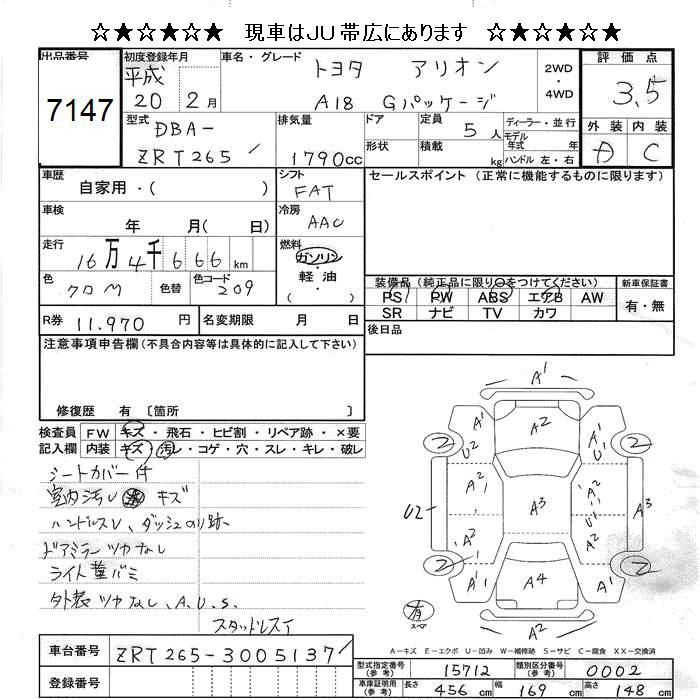 ☆★☆★☆★☆ 現車はJU帯広にあります ☆★☆★☆★☆
出品番号 初度登録年月 車名・グレード 評価点
7147 平成 20 2月 トヨタ アリオン 2WD ・ 4WD 3.5
A18 Gパッケージ
型式 DBA- ZRT265 排気量 1790cc ドア 形状 定員 5人 積載 kg ディーラー・並行 モデル年式 年 ハンドル 左・右 外装 内装 A C
車歴 自家用・( ) シフト FAT セールスポイント (正常に機能するものに限ります)
車検 年 月( 日) 冷房 AAC
走行 16万4千666km 燃料 ガソリン・軽油・( )
色 クロM 色替 色コード 209
装備品(純正品に限り○をつけてください) 新車保証書
PS PW ABS エアB AW 有・無
SR ナビ TV カワ
R券 11.970円 名変期限 月 日 後日品
注意事項申告欄(不具合内容等は具体的に記入して下さい)
修復歴 有 〔箇所 〕
検査員 FW キズ・飛石・ヒビ割・リペア跡・×要
記入欄 内装 キズ・汚レ・コゲ・穴・スレ・キレ・破レ
シートカバー付
室内汚レ キズ
ハンドルスレ、ダッシュのり跡
ドアミラーツカなし
ライト黄バミ
外装ツカなし、A.U.S.
スタッドレスT
A1
A2
A1 U2 A1 U1
2 2
A2 1 A2 1
U2 A3 A3
U1
A2 A2
2 2
A1 A4 A1
A2
有 スペア
A−キズ E−エクボ U−凹み W−補修跡 S−サビ C−腐食 XX−交換済
車台番号 ZRT265-3005137
登録番号
型式指定番号(参考) 15712 類別区分番号(参考) 0002
車庫証明用(参考) 長さ 456cm 幅 169cm 高さ 148cm